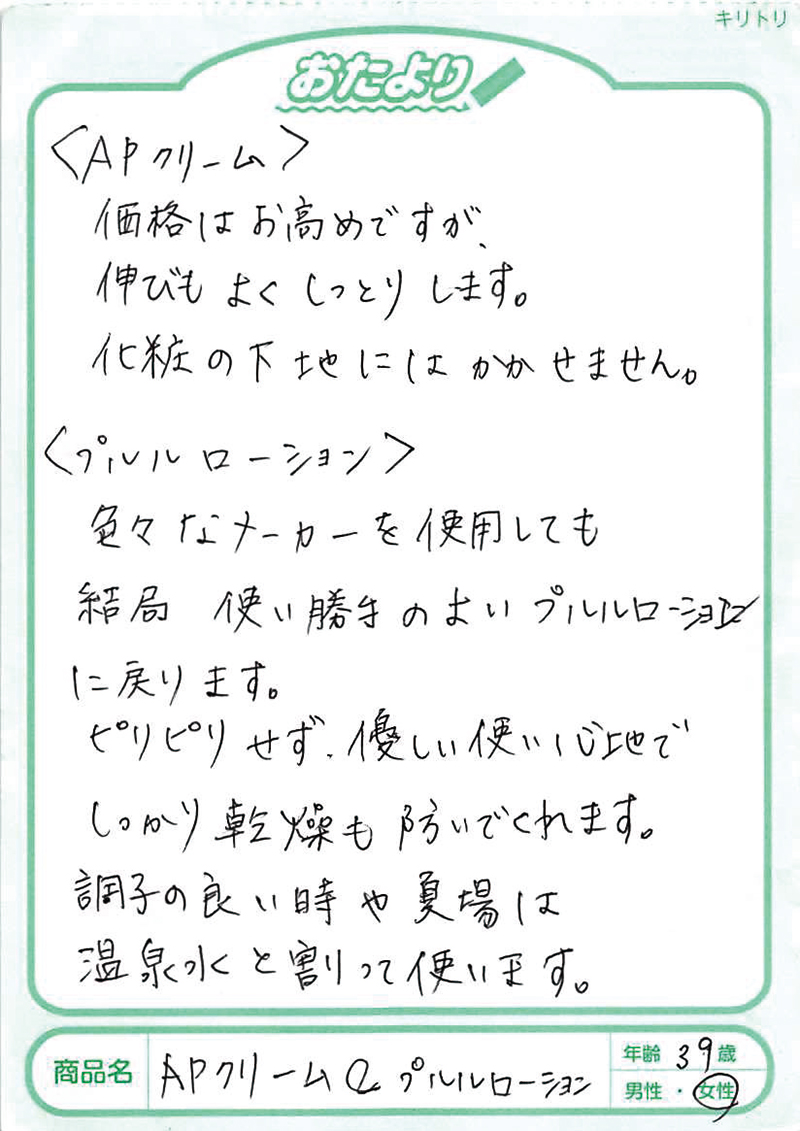 キリトリ
おたより
〈APクリーム〉
価格はお高めですが、
伸びもよくしっとりします。
化粧の下地にはかかせません。
〈プルルローション〉
色々なメーカーを使用しても
結局 使い勝手のよいプルルローション
に戻ります。
ピリピリせず、優しい使い心地で
しっかり乾燥も防いでくれます。
調子の良い時や夏場は
温泉水と割って使います。
商品名 APクリーム & プルルローション
年齢 39歳
男性・女性